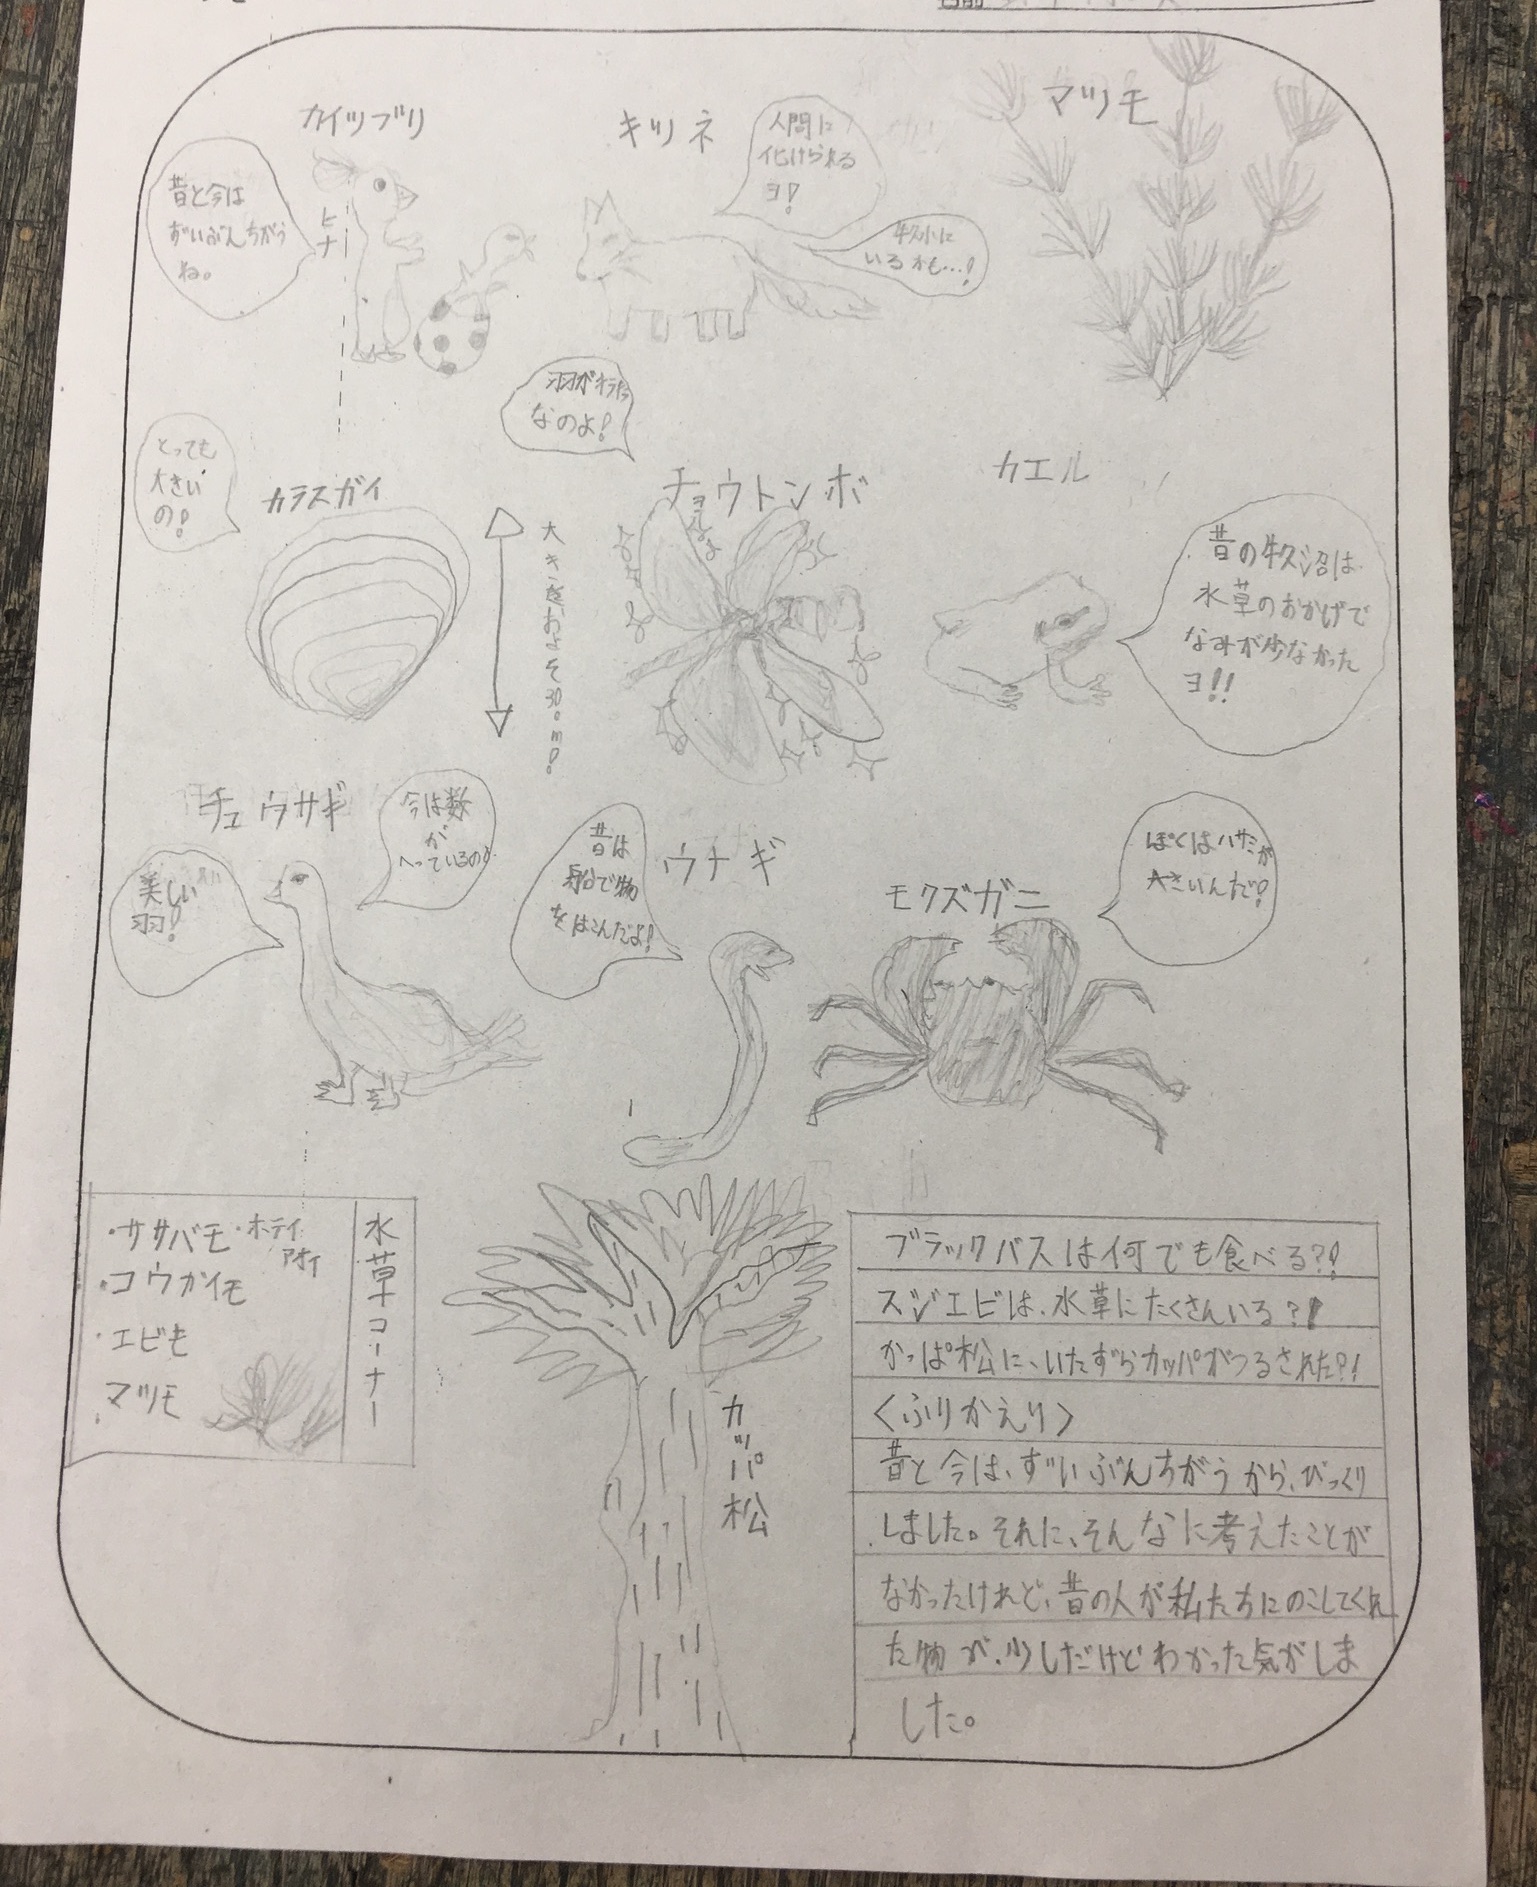 カイツブリ
昔と今は
ずいぶんちがう
ね。
ヒナ
キツネ
人間に
化けられる
ヨ!
牛久に
いるかも…!
マツモ
とっても
大きい
の!
カラスガイ
大きさおよそ30cm!
羽が
なのよ!
チョウトンボ
カエル
昔の牛久沼は
水草のおかげで
なみが少なかった
ヨ!!
チュウサギ
美しい
羽!
今は数
が
へっているのよ
ウナギ
昔は
船で物
をはこんだよ!
モクズガニ
ぼくはハサミが
大きいんだ!
水草コーナー
・ササバモ・ホテイ
アオイ
・コウガイモ
・エビモ
マツモ
カッパ松
ブラックバスは何でも食べる?!
スジエビは、水草にたくさんいる?!
かっぱ松に、いたずらカッパがつるされた?!
<ふりかえり>
昔と今は、ずいぶんちがうから、びっくり
しました。それに、そんなに考えたことが
なかったけれど、昔の人が私たちにのこしてくれ
た物が、少しだけどわかった気がしま
した。